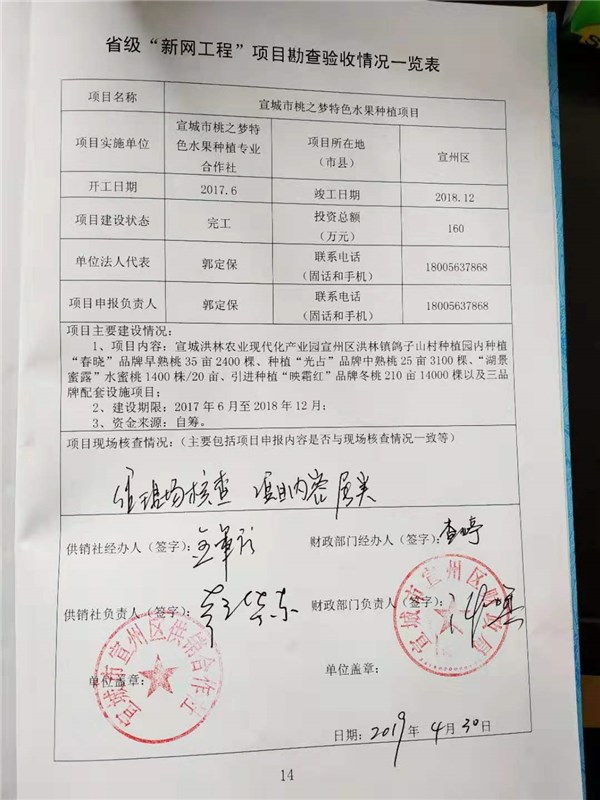 省级“新网工程”项目勘查验收情况一览表
项目名称 宣城市桃之梦特色水果种植项目
项目实施单位 宣城市桃之梦特色水果种植专业合作社 项目所在地（市县） 宣州区
开工日期 2017.6 竣工日期 2018.12
项目建设状态 完工 投资总额（万元） 160
单位法人代表 郭定保 联系电话（固话和手机） 18005637868
项目申报负责人 郭定保 联系电话（固话和手机） 18005637868
项目主要建设情况：
1、项目内容：宣城洪林农业现代化产业园宣州区洪林镇鸽子山村种植园内种植
“春晓”品牌早熟桃 35 亩 2400 棵、种植“光占”品牌中熟桃 25 亩 3100 棵、“湖景
蜜露”水蜜桃 1400 株/20 亩、引进种植“映霜红”品牌冬桃 210 亩 14000 棵以及三品
牌配套设施项目；
2、建设期限：2017 年 6 月至 2018 年 12 月；
3、资金来源：自筹。
项目现场核查情况：（主要包括项目申报内容是否与现场核查情况一致等）
经现场核查 项目内容属实
供销社经办人（签字）： 财政部门经办人（签字）：查婷
供销社负责人（签字）： 财政部门负责人（签字）：
宣城市宣州区供销合作社
宣城市宣州区财政局
单位盖章： 单位盖章：
日期：2019 年 4 月 30 日
14